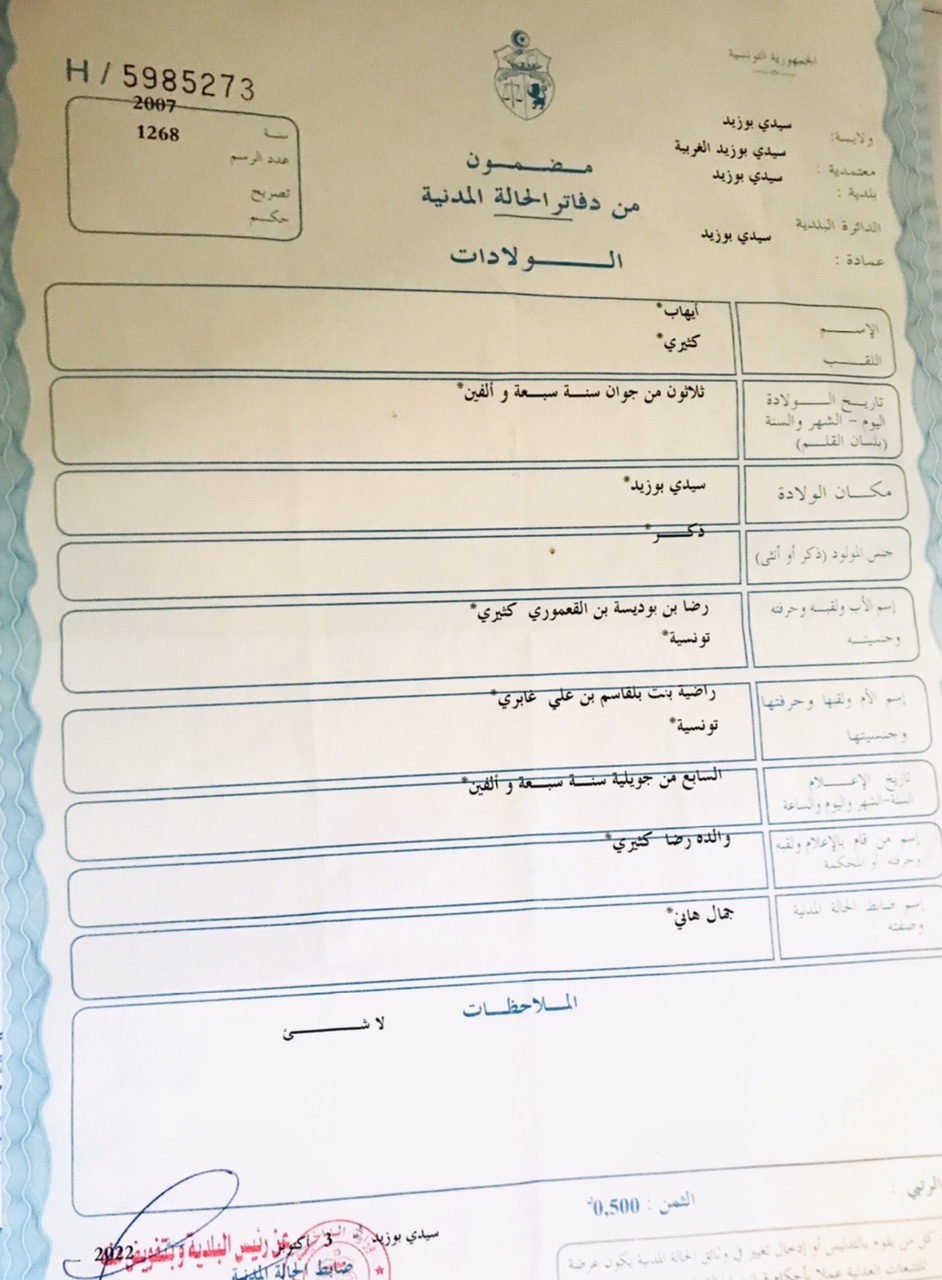 الجمهورية التونسية
H / 5985273
ولاية: سيدي بوزيد
معتمدية : سيدي بوزيد الغربية
بلدية : سيدي بوزيد
الدائرة البلدية سيدي بوزيد
عمادة :
سنة 2007
عدد الرسم 1268
تصريح
حكم
مضمون
من دفاتر الحالة المدنية
الولادات
الإسم أيهاب*
اللقب كثيري*
تاريخ الولادة ثلاثون من جوان سنة سبعة و ألفين*
اليوم - الشهر والسنة
(بلسان القلم)
مكان الولادة سيدي بوزيد*
جنس المولود (ذكر أو أنثى) ذكر*
إسم الأب ولقبه وحرفته رضا بن بوديسة بن القعموري كثيري*
وجنسيته تونسية*
إسم الأم ولقبها وحرفتها راضية بنت بلقاسم بن علي غابري*
وجنسيتها تونسية*
تاريخ الإعلام السابع من جويلية سنة سبعة و ألفين*
السنة-الشهر واليوم والساعة
إسم من قام بالإعلام ولقبه والده رضا كثيري*
وحرفته أو المحكمة
إسم ضابط الحالة المدنية جمال هاني*
وصفته
الملاحظات
لا شئ
الثمن : 0,500د
سيدي بوزيد 3 أكتوبر 2022
عن رئيس البلدية وبتفويض منه
ضابط الحالة المدنية
كل من يقوم بالتدليس أو إدخال تغيير في وثائق الحالة المدنية يكون عرضة
للتتبعات العدلية عملا بأحكام